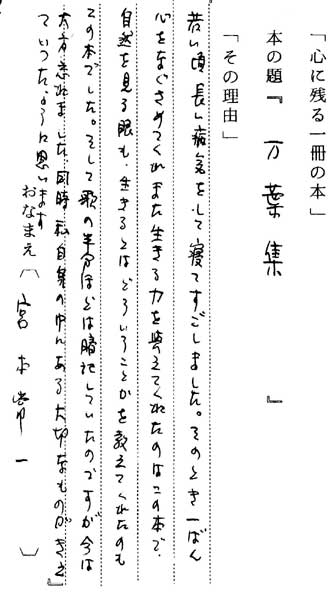 「心に残る一冊の本」
本の題『万葉集』
「その理由」
若い頃長い病気をして寝てすごしました。そのとき一ばん
心をなぐさめてくれまた生きる力を与えてくれたのはこの本で
自然を見る眼も、生きるとはどういうことかを教えてくれたのも
この本でした。そして歌の半分ほどは暗記していたのですが今は
大方忘れました同時に私自身の中にある大切なものがきえ
ていったように思います
おなまえ（宮本常一）